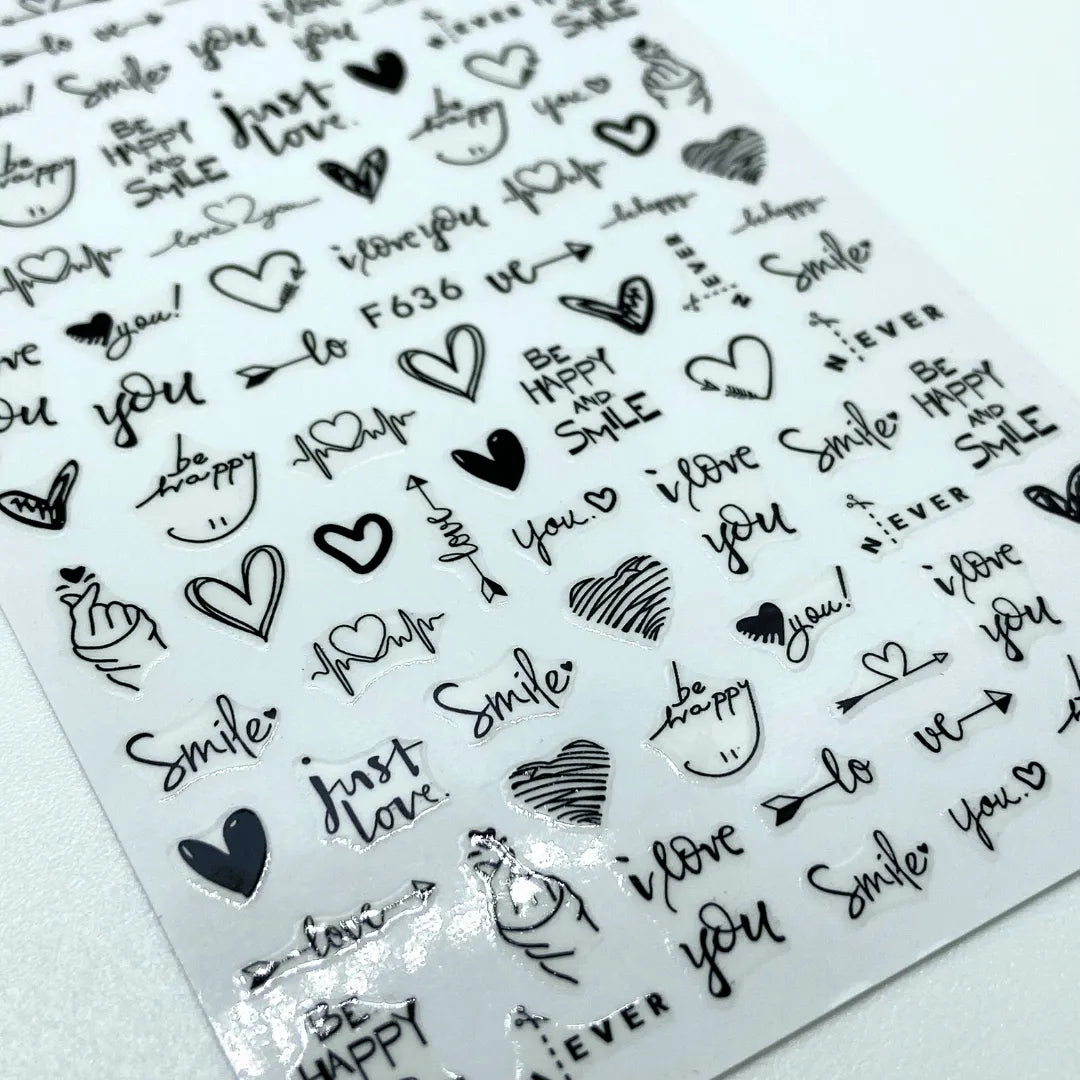 lo ve you i love you NEVER BE HAPPY AND SMILE
you! Smile. just love. be happy you.
be happy BE HAPPY AND SMILE
love you i love you be happy be happy NEVER Smile
you! F636 ve NEVER
ve you you lo BE HAPPY AND SMILE BE HAPPY AND SMILE
be happy i love you Smile. NEVER
love you. you! i love you
Smile. Smile. be happy ve
just love. lo you.
love i love you Smile
BE HAPPY NEVER